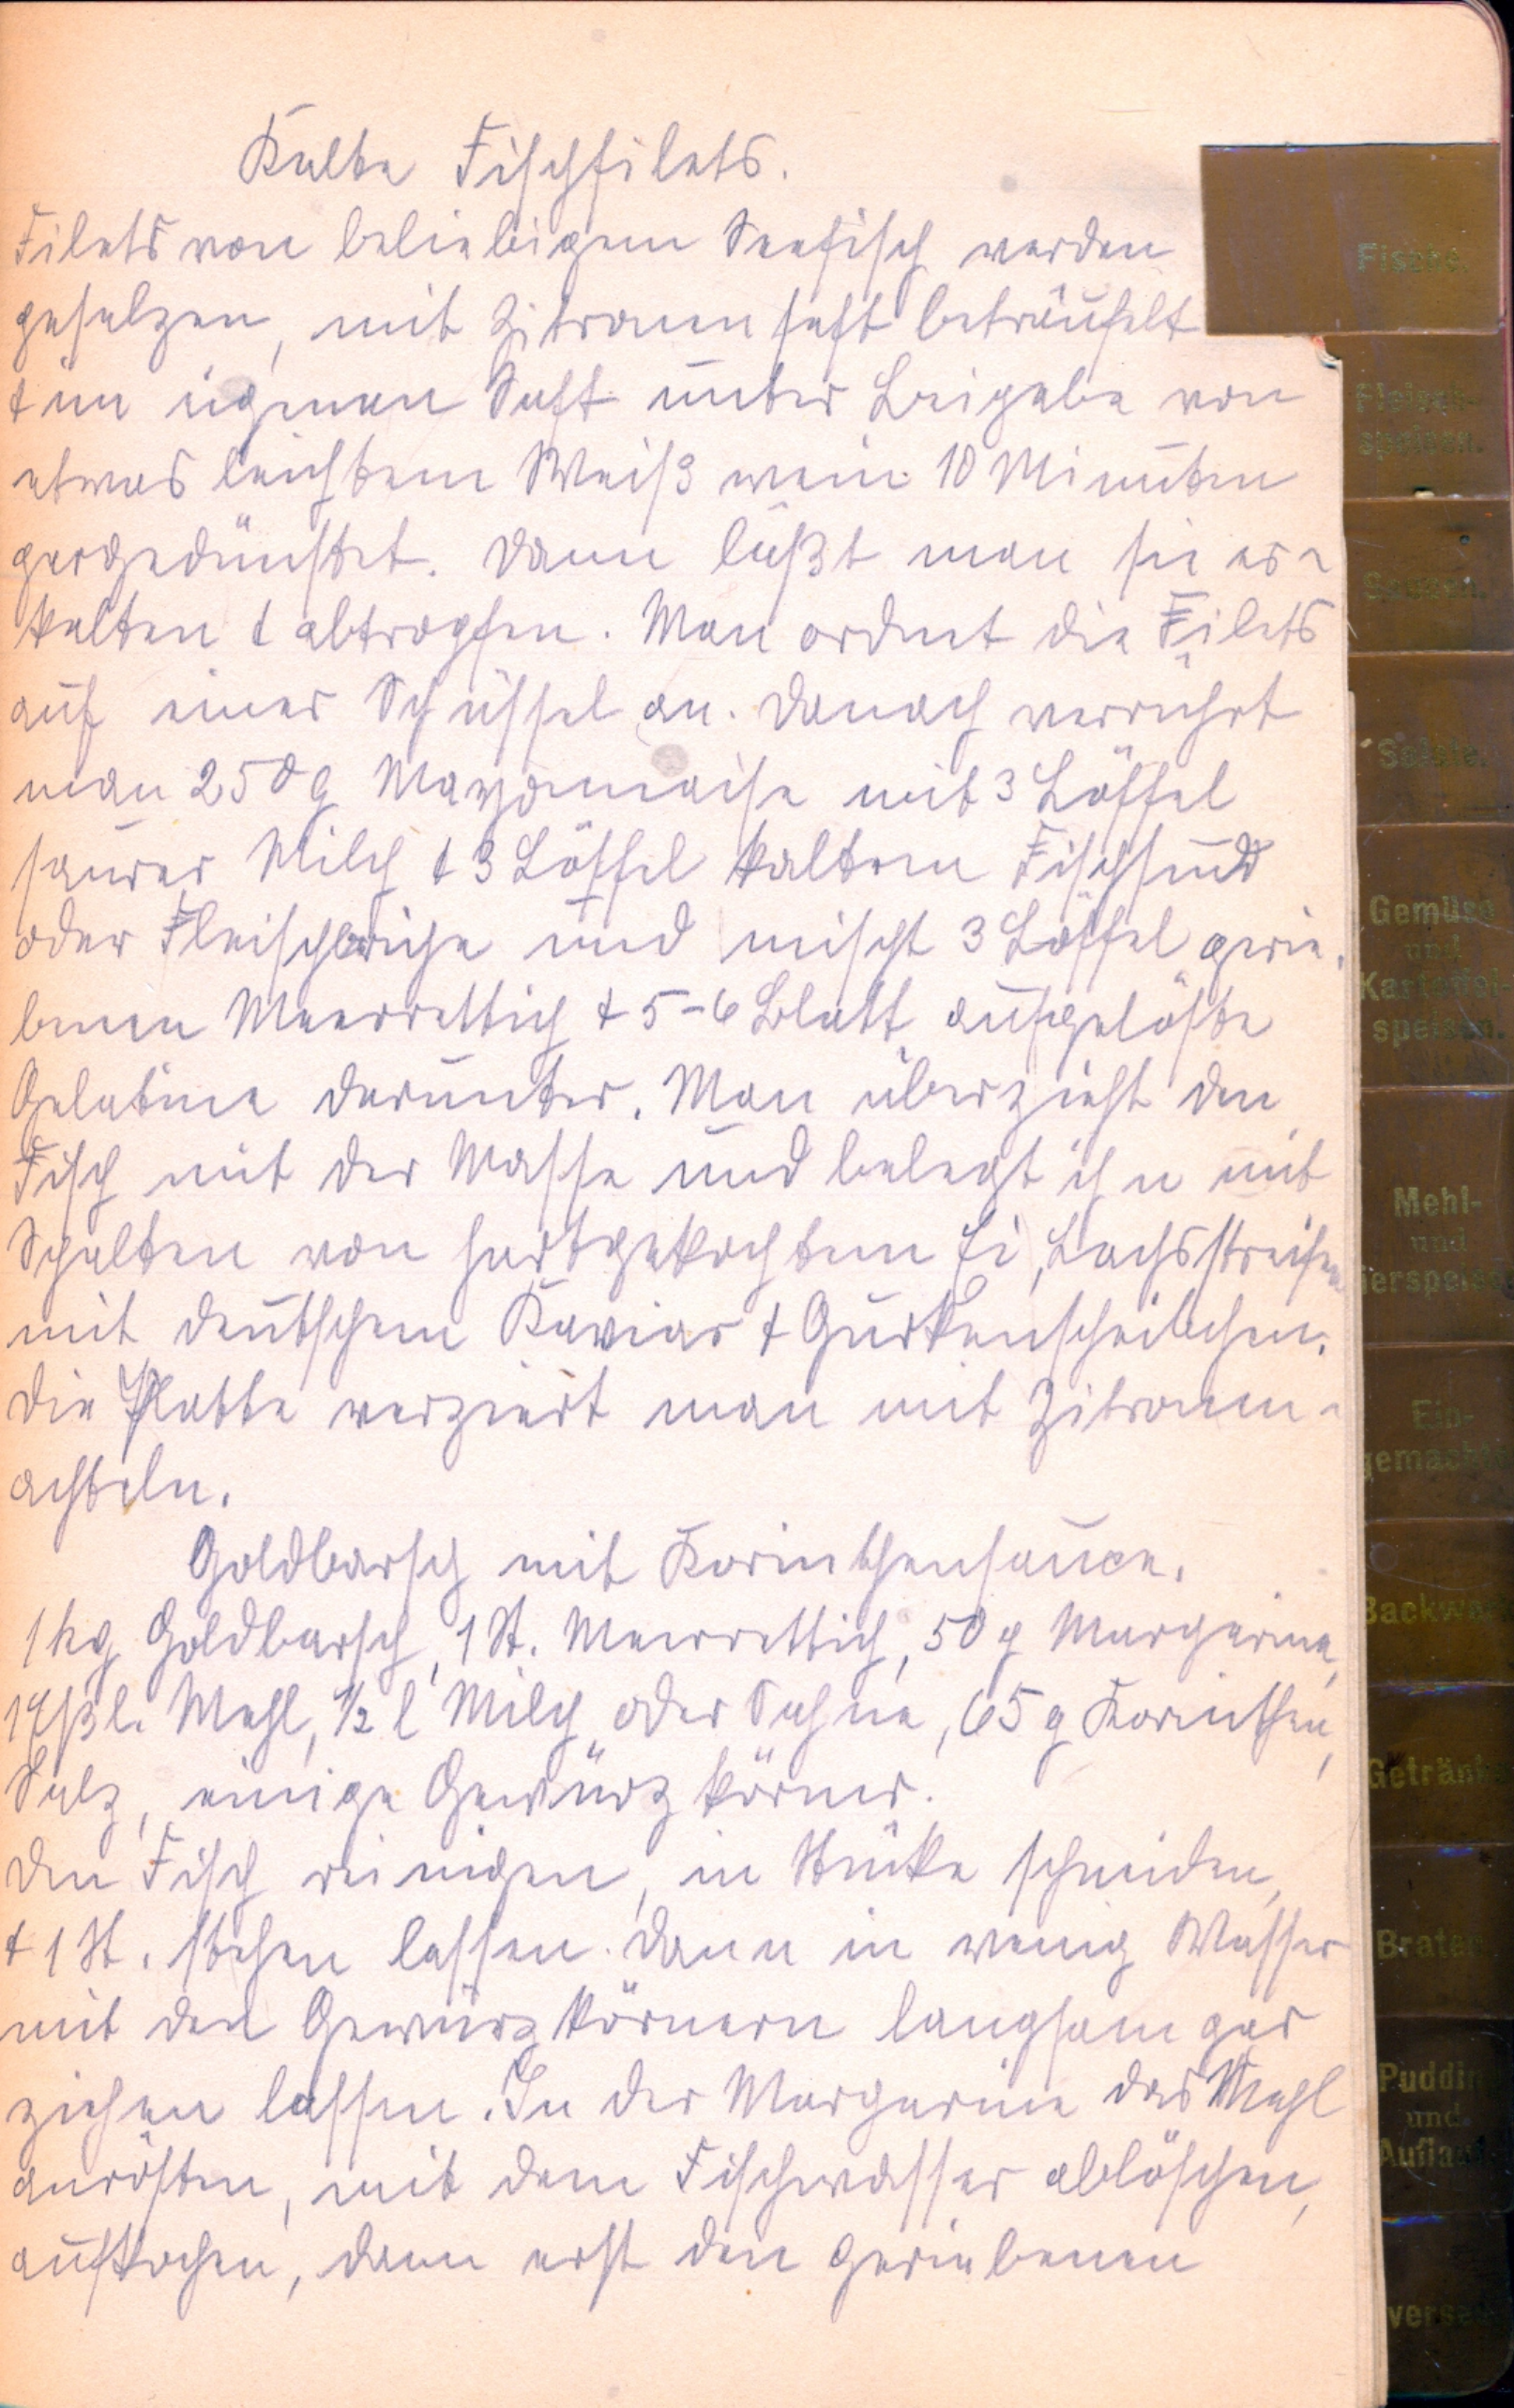 Kalte Fischfilets.
Filets von beliebigem Seefisch werden
gesalzen, mit Zitronensaft beträufelt
+ im eigenen Saft unter Beigabe von
etwas leichtem Weißwein 10 Minuten
gargedünstet. Dann läßt man sie er-
kalten + abtropfen. Man ordnet die Filets
auf einer Schüssel an. Danach verrührt
man 250 g Mayonnaise mit 3 Löffel
saurer Milch + 3 Löffel kaltem Fischsud
oder Fleischbrühe und mischt 3 Löffel gerie-
benen Meerrettich + 5-6 Blatt aufgelöste
Gelatine darunter. Man überzieht den
Fisch mit der Masse und belegt ihn mit
Spalten von hartgekochtem Ei, Lachsstreifen
mit deutschem Kaviar + Gurkenscheibchen.
Die Platte verziert man mit Zitronen-
achteln.
Goldbarsch mit Korinthensauce.
1 kg Goldbarsch, 1 St. Meerrettich, 50 g Margarine,
1 Eßl. Mehl, 1/2 l Milch oder Sahne, 65 g Korinthen,
Salz, einige Gewürzkörner.
Den Fisch reinigen, in Stücke schneiden,
+ 1 St. stehen lassen. Dann in wenig Wasser
mit den Gewürzkörnern langsam gar
ziehen lassen. In der Margarine das Mehl
anrösten, mit dem Fischwasser ablöschen,
aufkochen, dann erst den geriebenen
Fische.
Fleisch-
speisen.
Saucen.
Salate.
Gemüse
und
Kartoffel-
speisen.
Mehl-
und
ierspeise
Ein-
gemacht
Backwa
Getränk
Braten
Puddin
und
Auflau
verse